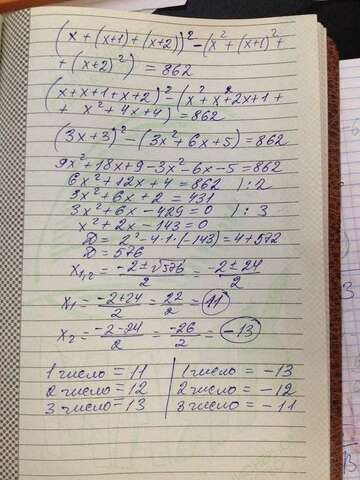 (x+(x+1)+(x+2))² - (x²+(x+1)²+
+(x+2)²) = 862
(x+x+1+x+2)² - (x²+x²+2x+1+
+ x²+4x+4) = 862
(3x+3)² - (3x²+6x+5) = 862
9x²+18x+9-3x²-6x-5=862
6x²+12x+4=862 | :2
3x²+6x+2=431
3x²+6x-429=0 | :3
x²+2x-143=0
D = 2²-4·1·(-143)=4+572
D = 576
x₁,₂ = (-2±√576)/2 = (-2±24)/2
x₁ = (-2+24)/2 = 22/2 = 11
x₂ = (-2-24)/2 = -26/2 = -13
1 число = 11 | 1 число = -13
2 число = 12 | 2 число = -12
3 число = 13 | 3 число = -11